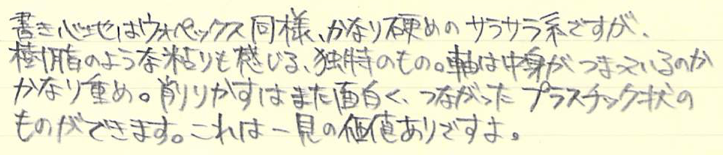 書き心地はウォペックス同様、かなり硬めのサラサラ系ですが、
樹脂のような粘りも感じる、独特のもの。軸は中身がつまっているのか
かなり重め。削りかすはまた面白く、つながったプラスチック状の
ものができます。これは一見の価値ありですよ。